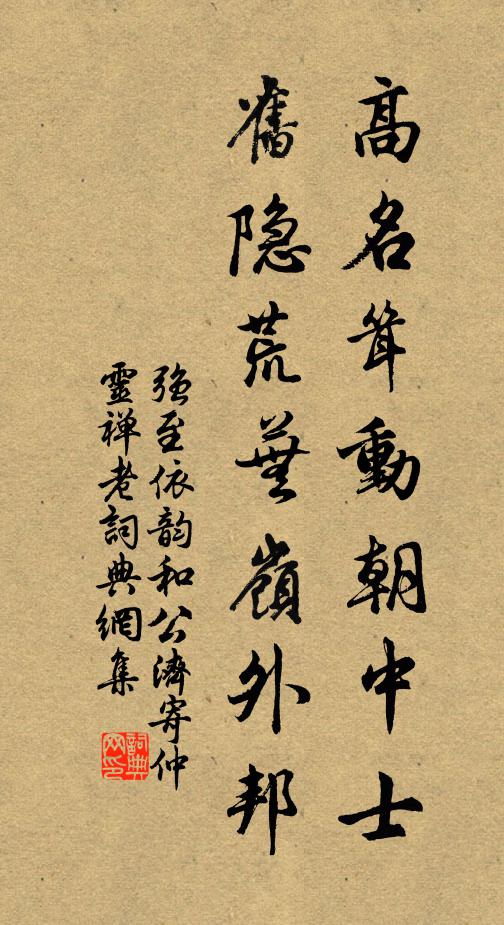 高名耸動朝中士
舊隐荒蕪嶺外邦
强至依韵和公濟寄仲
靈禅老詞典網集
詞典
网印